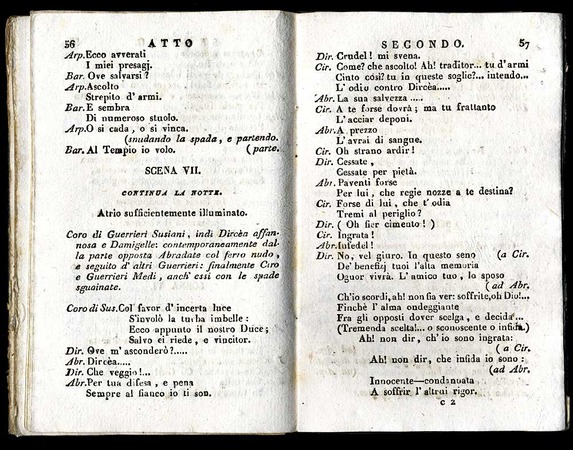 56 ATTO
Arp. Ecco avverati
I miei presagj.
Bar. Ove salvarsi?
Arp. Ascolto
Strepito d'armi.
Bar. E sembra
Di numeroso stuolo.
Arp. O si cada, o si vinca.
(snudando la spada, e partendo.
Bar. Al Tempio io volo. (parte.
SCENA VII.
CONTINUA LA NOTTE.
Atrio sufficientemente illuminato.
Coro di Guerrieri Susiani, indi Dircèa affan-
nosa e Damigelle: contemporaneamente dal-
la parte opposta Abradate col ferro nudo,
e seguito d'altri Guerrieri: finalmente Ciro
e Guerrieri Medi, anch'essi con le spade
sguainate.
Coro di Sus. Col favor d'incerta luce
S'involò la turba imbelle:
Ecco appunto il nostro Duce;
Salvo ei riede, e vincitor.
Dir. Ove m'asconderò?.....
Abr. Dircèa.....
Dir. Che veggio!...
Abr. Per tua difesa, e pena
Sempre al fianco io ti son.
SECONDO. 57
Dir. Crudel! mi svena.
Cir. Come? che ascolto! Ah! traditor... tu d'armi
Cinto così? tu in queste soglie?... intendo...
L'odio contro Dircèa.....
Abr. La sua salvezza.....
Cir. A te forse dovrà; ma tu frattanto
L'acciar deponi.
Abr. A prezzo
L'avrai di sangue.
Cir. Oh strano ardir!
Dir. Cessate,
Cessate per pietà.
Abr. Paventi forse
Per lui, che regie nozze a te destina?
Cir. Forse di lui, che t'odia
Tremi al periglio?
Dir. (Oh fier cimento!)
Cir. Ingrata!
Abr. Infedel!
Dir. No, vel giuro. In questo seno (a Cir.
De' benefizj tuoi l'alta memoria
Ognor vivrà. L'amico tuo, lo sposo
(ad Abr.
Ch'io scordi, ah! non fia ver: soffrite, oh Dio!...
Finchè l'alma ondeggiante
Fra gli opposti dover scelga, e decida...
(Tremenda scelta!... o sconoscente o infida.)
Ah! non dir, ch'io sono ingrata:
(a Cir.
Ah! non dir, che infida io sono:
(ad Abr.
Innocente—condannata
A soffrir l'altrui rigor.
C 2